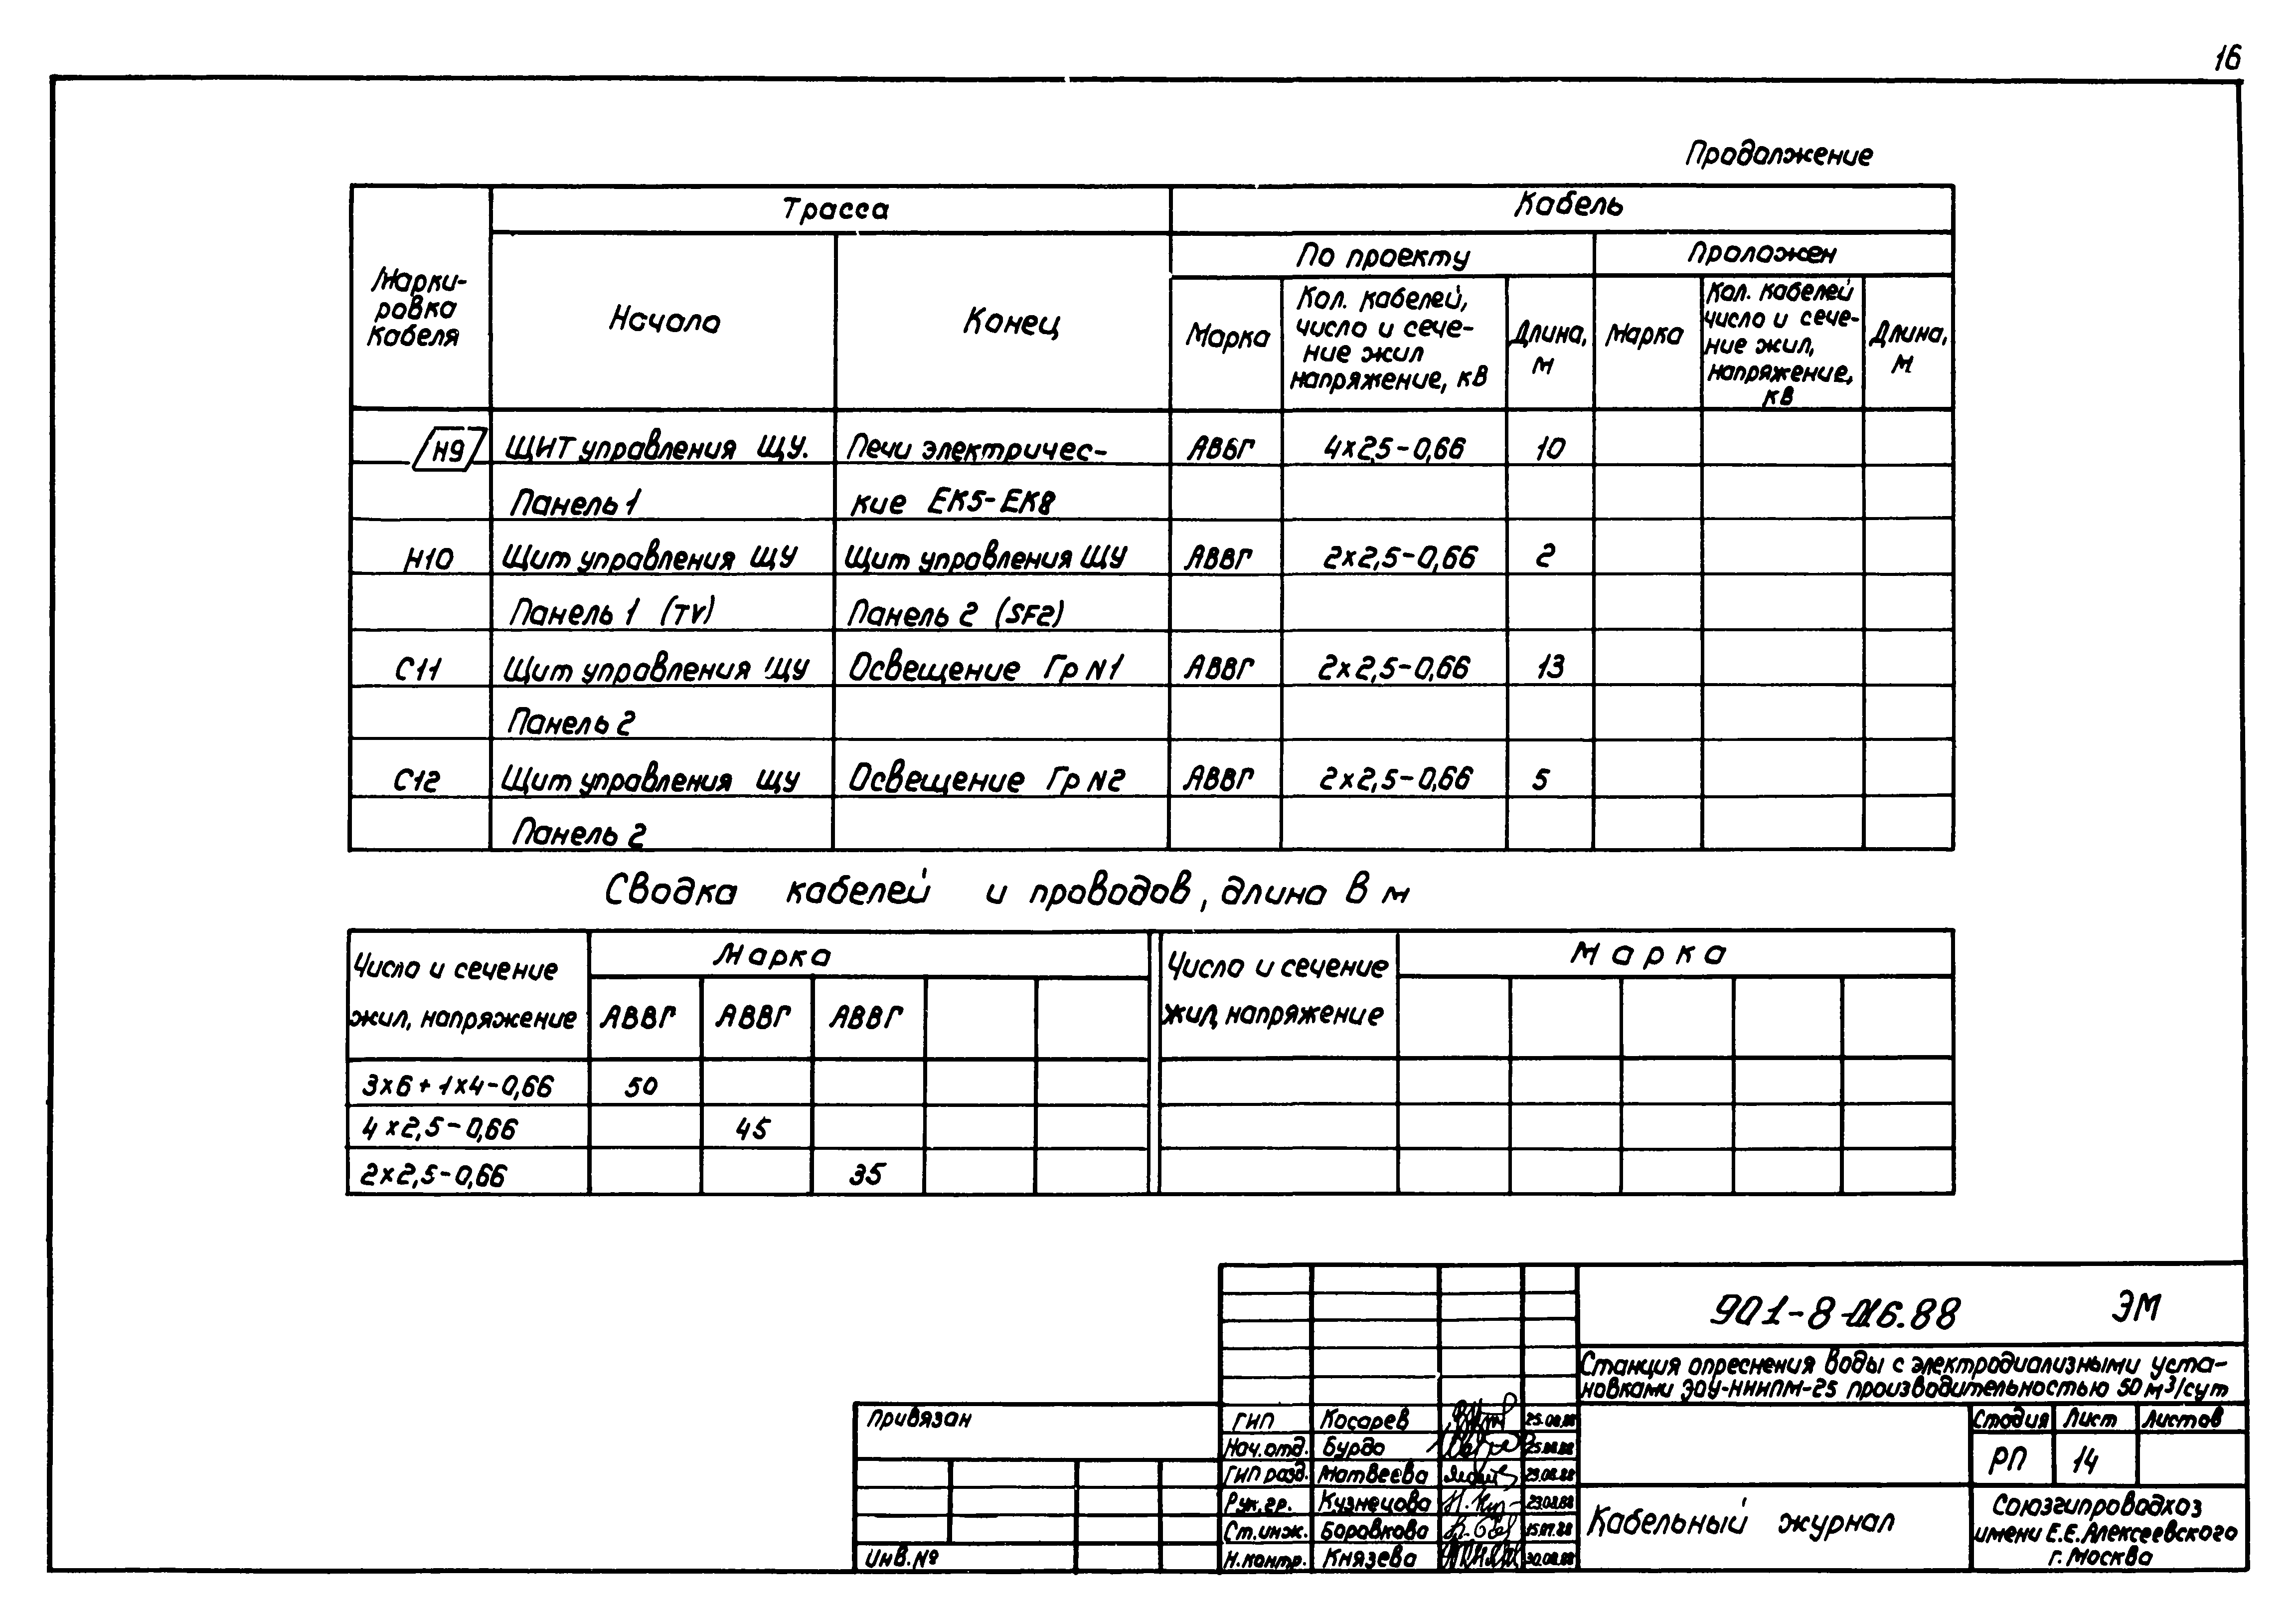 16
Продолжение
Марки-
ровка
кабеля
Трасса
Кабель
Начало
Конец
По проекту
Проложен
Марка
Кол. кабелей,
число и сече-
ние жил
напряжение, кВ
Длина,
м
Марка
Кол. кабелей
число и сече-
ние жил,
напряжение,
кВ
Длина,
м
Н9 ЩИТ управления ЩУ. Печи электричес- АВВГ 4х2,5-0,66 10
Панель 1 кие ЕК5-ЕК8
Н10 Щит управления ЩУ Щит управления ЩУ АВВГ 2х2,5-0,66 2
Панель 1 (TV) Панель 2 (SF2)
С11 Щит управления ЩУ Освещение Гр N1 АВВГ 2х2,5-0,66 13
Панель 2
С12 Щит управления ЩУ Освещение Гр N2 АВВГ 2х2,5-0,66 5
Панель 2
Сводка кабелей и проводов, длина в м
Число и сечение
жил, напряжение
Марка
АВВГ АВВГ АВВГ
Число и сечение
жил, напряжение
Марка
3х6+1х4-0,66 50
4х2,5-0,66 45
2х2,5-0,66 35
901-8-016.88 ЭМ
Станция опреснения воды с электродиализными уста-
новками ЭОУ-НИИПМ-25 производительностью 50 м³/сут
Привязан
Инв.№
ГИП Косарев 25.08.88
Нач.отд. Бурдо 25.08.88
ГИП разд. Матвеева 23.08.88
Рук.гр. Кузнецова 23.08.88
Ст.инж. Боровкова 15.07.88
Н.контр. Князева 30.08.88
Стадия Лист Листов
РП 14
Кабельный журнал
Союзгипроводхоз
имени Е.Е.Алексеевского
г. Москва